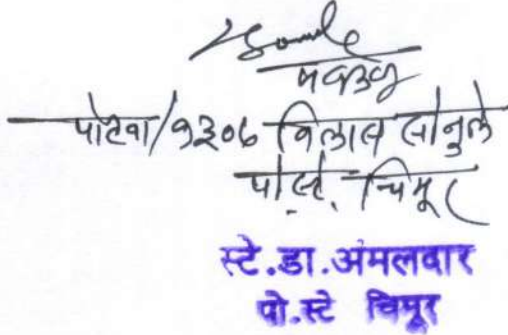 पोहवा/१३०७ विलास सोनुले
पो.स्टे. चिमूर
स्टे.डा.अंमलदार
पो.स्टे चिमूर